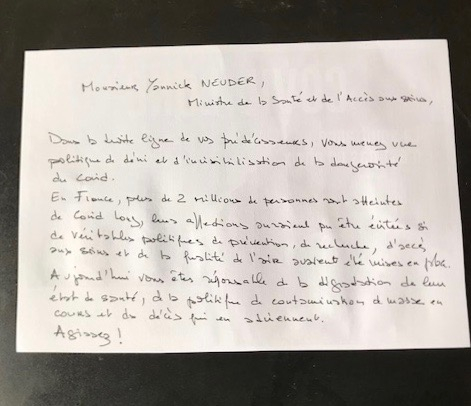 Monsieur Yannick NEUDER,
Ministre de la Santé et de l'Accès aux soins,
Dans la droite ligne de vos prédécesseurs, vous menez une
politique de déni et d'invisibilisation de la dangerosité
du Covid.
En France, plus de 2 millions de personnes sont atteintes
de Covid long, leurs affections auraient pu être évitées si
de véritables politiques de prévention, de recherche, d'accès
aux soins et de la qualité de l'air avaient été mises en place.
Aujourd'hui vous êtes responsable de la dégradation de leur
état de santé, de la politique de contamination de masse en
cours et des décès qui en adviennent.
Agissez !